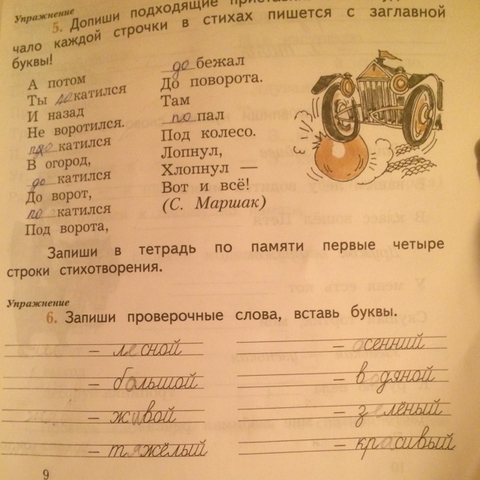 Упражнение
5. Допиши подходящие
чало каждой строчки в стихах пишется с заглавной
буквы!
А потом
Ты покатился
И назад
Не воротился.
катился
В огород,
докатился
До ворот,
покатился
Под ворота,
добежал
До поворота.
Там
попал
Под колесо.
Лопнул,
Хлопнул —
Вот и всё!
(С. Маршак)
Запиши в тетрадь по памяти первые четыре
строки стихотворения.
Упражнение
6. Запиши проверочные слова, вставь буквы.
– лесной
– осенний
– большой
– водяной
– живой
– зелёный
– тяжёлый
– красивый
9